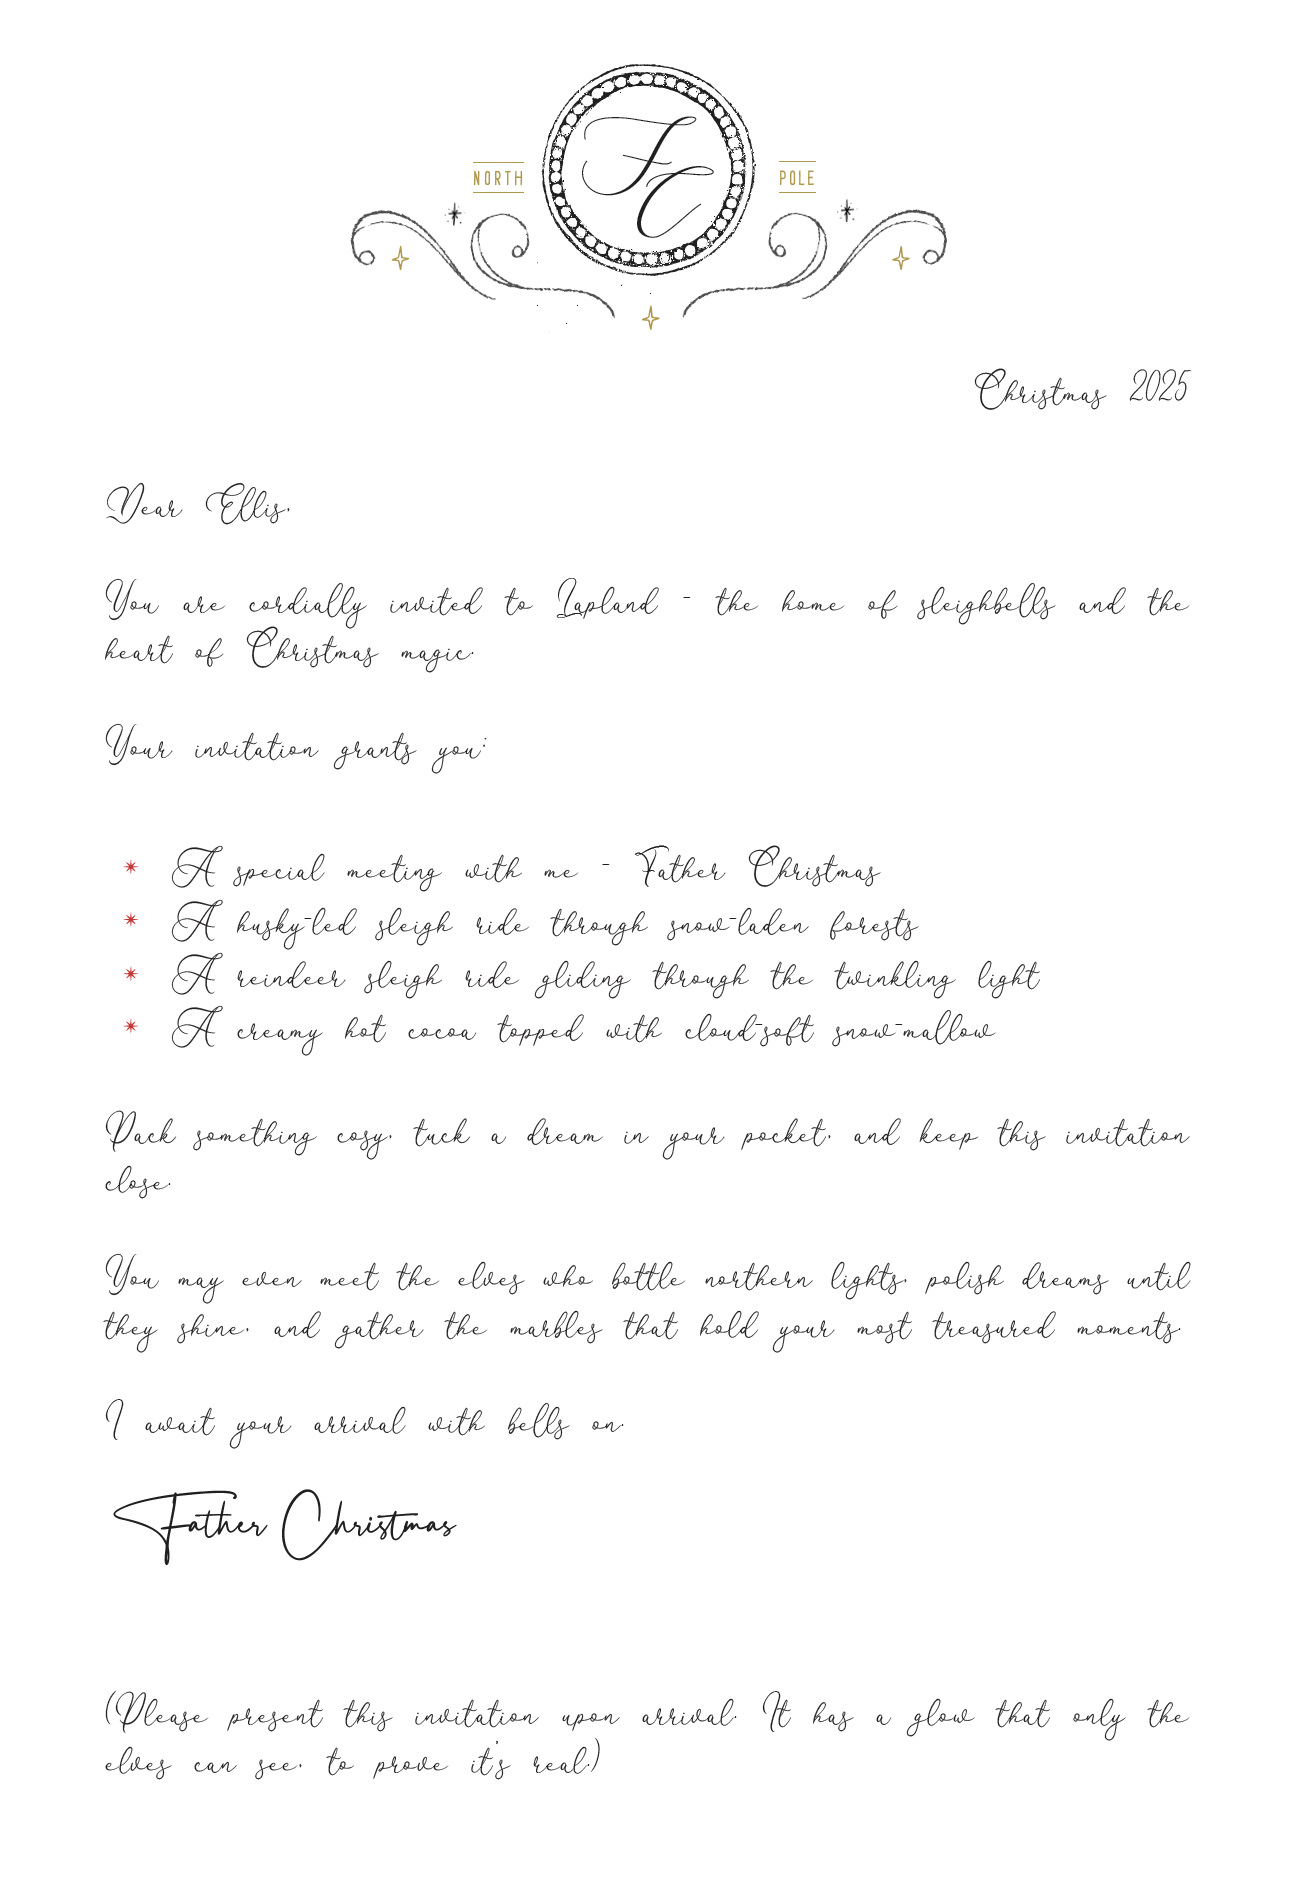 FC
NORTH POLE
Christmas 2025
Dear Ellis,
You are cordially invited to Lapland - the home of sleighbells and the
heart of Christmas magic.
Your invitation grants you:
* A special meeting with me - Father Christmas
* A husky-led sleigh ride through snow-laden forests
* A reindeer sleigh ride gliding through the twinkling light
* A creamy hot cocoa topped with cloud-soft snow-mallow
Pack something cosy, tuck a dream in your pocket, and keep this invitation
close.
You may even meet the elves who bottle northern lights, polish dreams until
they shine, and gather the marbles that hold your most treasured moments.
I await your arrival with bells on.
Father Christmas
(Please present this invitation upon arrival. It has a glow that only the
elves can see, to prove it's real.)